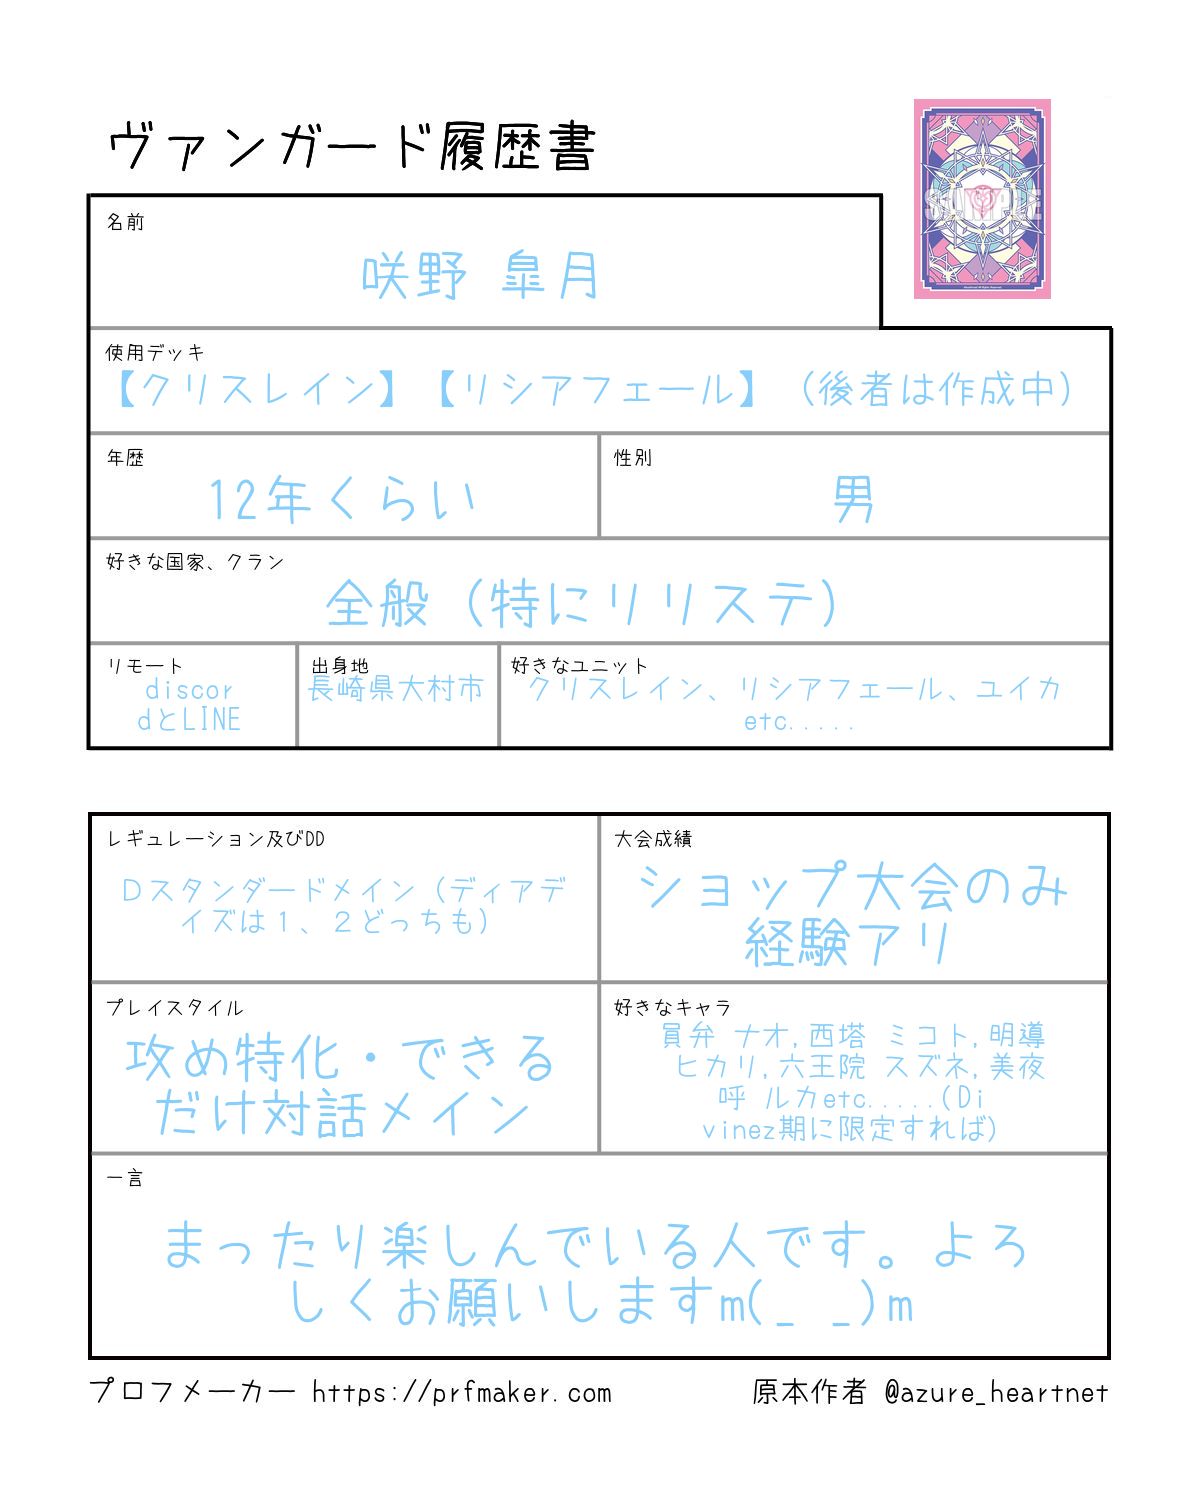 ヴァンガード履歴書
SAMPLE
名前
咲野 皐月
使用デッキ
【クリスレイン】【リシアフェール】（後者は作成中）
年歴
12年くらい
性別
男
好きな国家、クラン
全般（特にリリステ）
リモート
discor
dとLINE
出身地
長崎県大村市
好きなユニット
クリスレイン、リシアフェール、ユイカ
etc.....
レギュレーション及びDD
Ｄスタンダードメイン（ディアデ
イズは１、２どっちも）
大会成績
ショップ大会のみ
経験アリ
プレイスタイル
攻め特化・できる
だけ対話メイン
好きなキャラ
員弁 ナオ,西塔 ミコト,明導
ヒカリ,六王院 スズネ,美夜
呼 ルカetc.....(Di
vinez期に限定すれば)
一言
まったり楽しんでいる人です。よろ
しくお願いしますm(_ _)m
プロフメーカー https://prfmaker.com
原本作者 @azure_heartnet